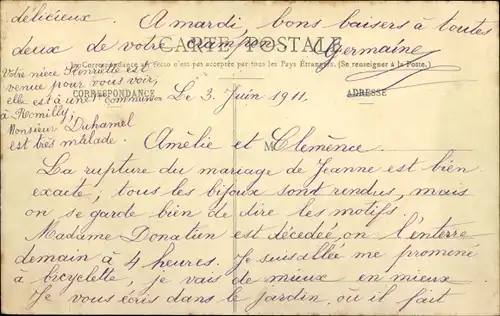 délicieux. A mardi, bons baisers à toutes
deux de votre
Germaine
CARTE POSTALE
La Correspondance au recto n'est pas acceptée par tous les Pays Étrangers. (Se renseigner à la Poste.)
CORRESPONDANCE
ADRESSE
Votre nièce Henriette est
venue pour vous voir,
elle est à une 1re
Communion
à Romilly,
Monsieur Duhamel
est très malade.
Le 3 Juin 1911.
Amélie et Clémence.
M
La rupture du mariage de Jeanne est bien
exacte; tous les bijoux sont rendus, mais
on se garde bien de dire les motifs.
Madame Donatien est décédée, on l'enterre
demain à 4 heures. Je suis allée me promené
à bicyclette, je vais de mieux en mieux
Je vous écris dans le jardin où il fait